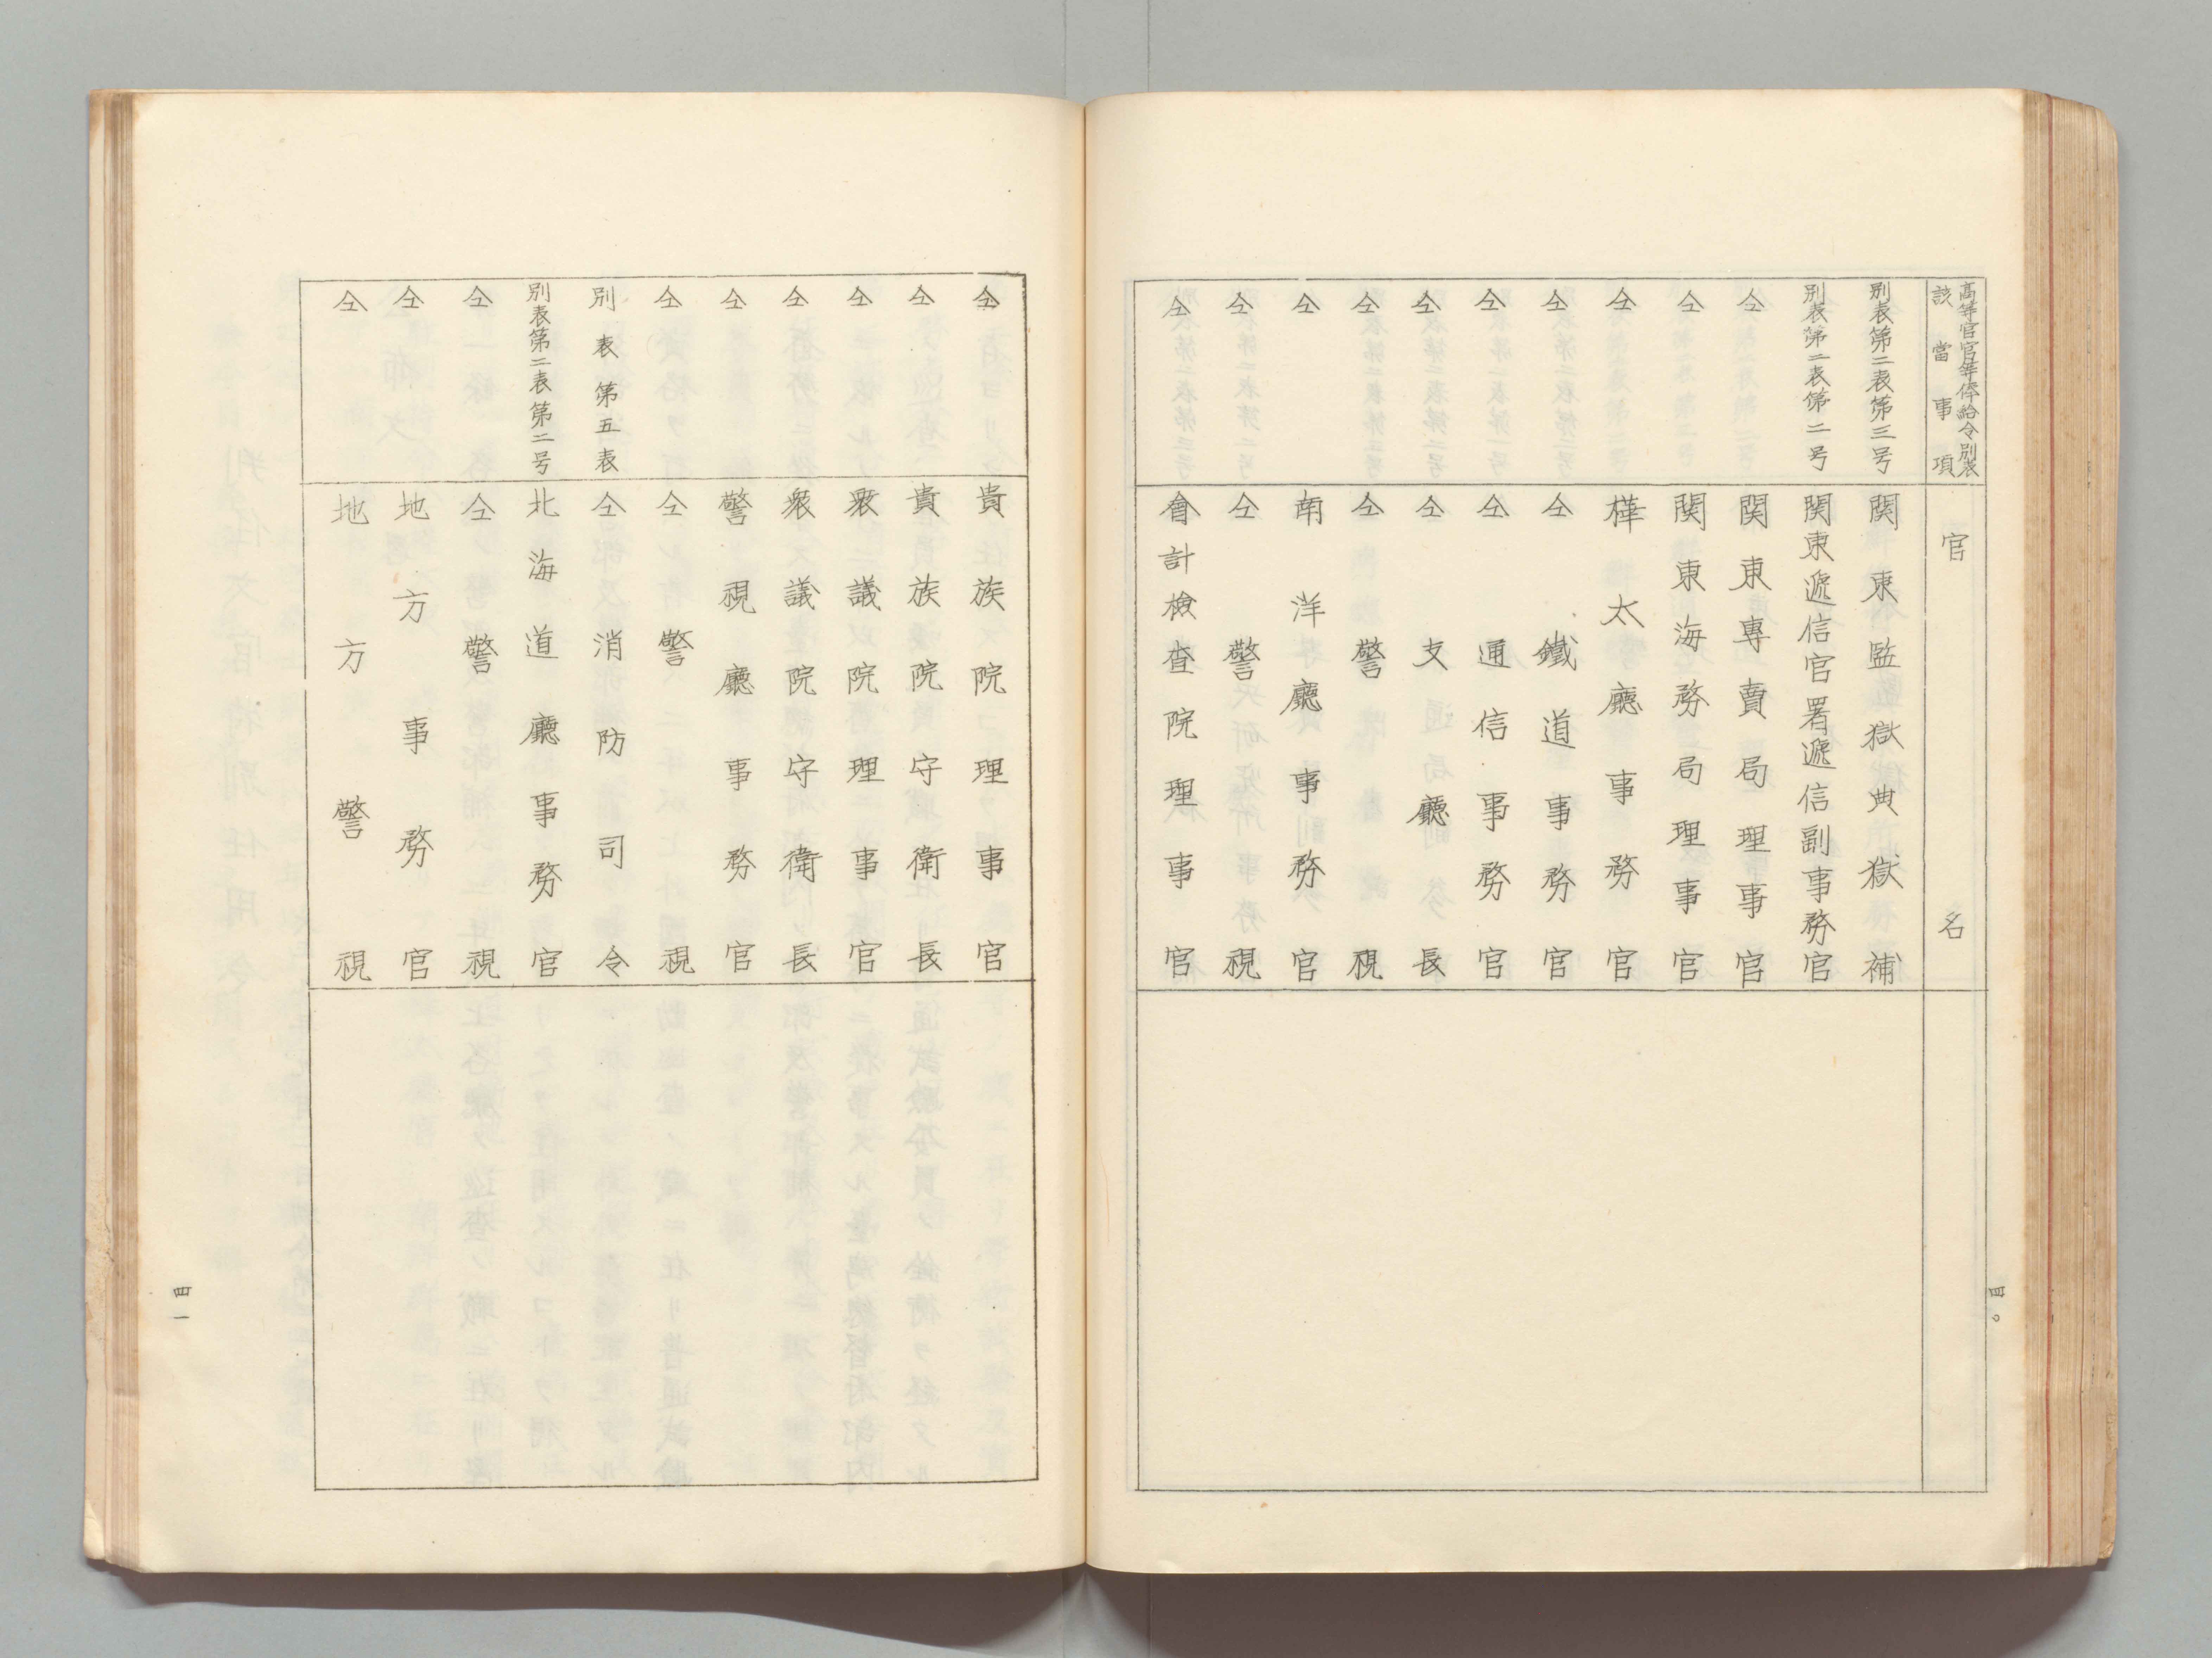 高等官官等俸給令別表
該當事項
官名
別表第二表第三号 関東監獄典獄補
別表第二表第二号 関東遞信官署遞信副事務官
仝 関東專賣局理事官
仝 関東海務局理事官
仝 樺太廳事務官
仝 仝鐵道事務官
仝 仝通信事務官
仝 仝支廳長
仝 仝警視
仝 南洋廳事務官
仝 仝警視
仝 會計檢査院理事官
四〇
仝 貴族院理事官
仝 貴族院守衛長
仝 衆議院理事官
仝 衆議院守衛長
仝 警視廳事務官
仝 仝警視
別表第五表 仝消防司令
別表第二表第二号 北海道廳事務官
仝 仝警視
仝 地方事務官
仝 地方警視
四一